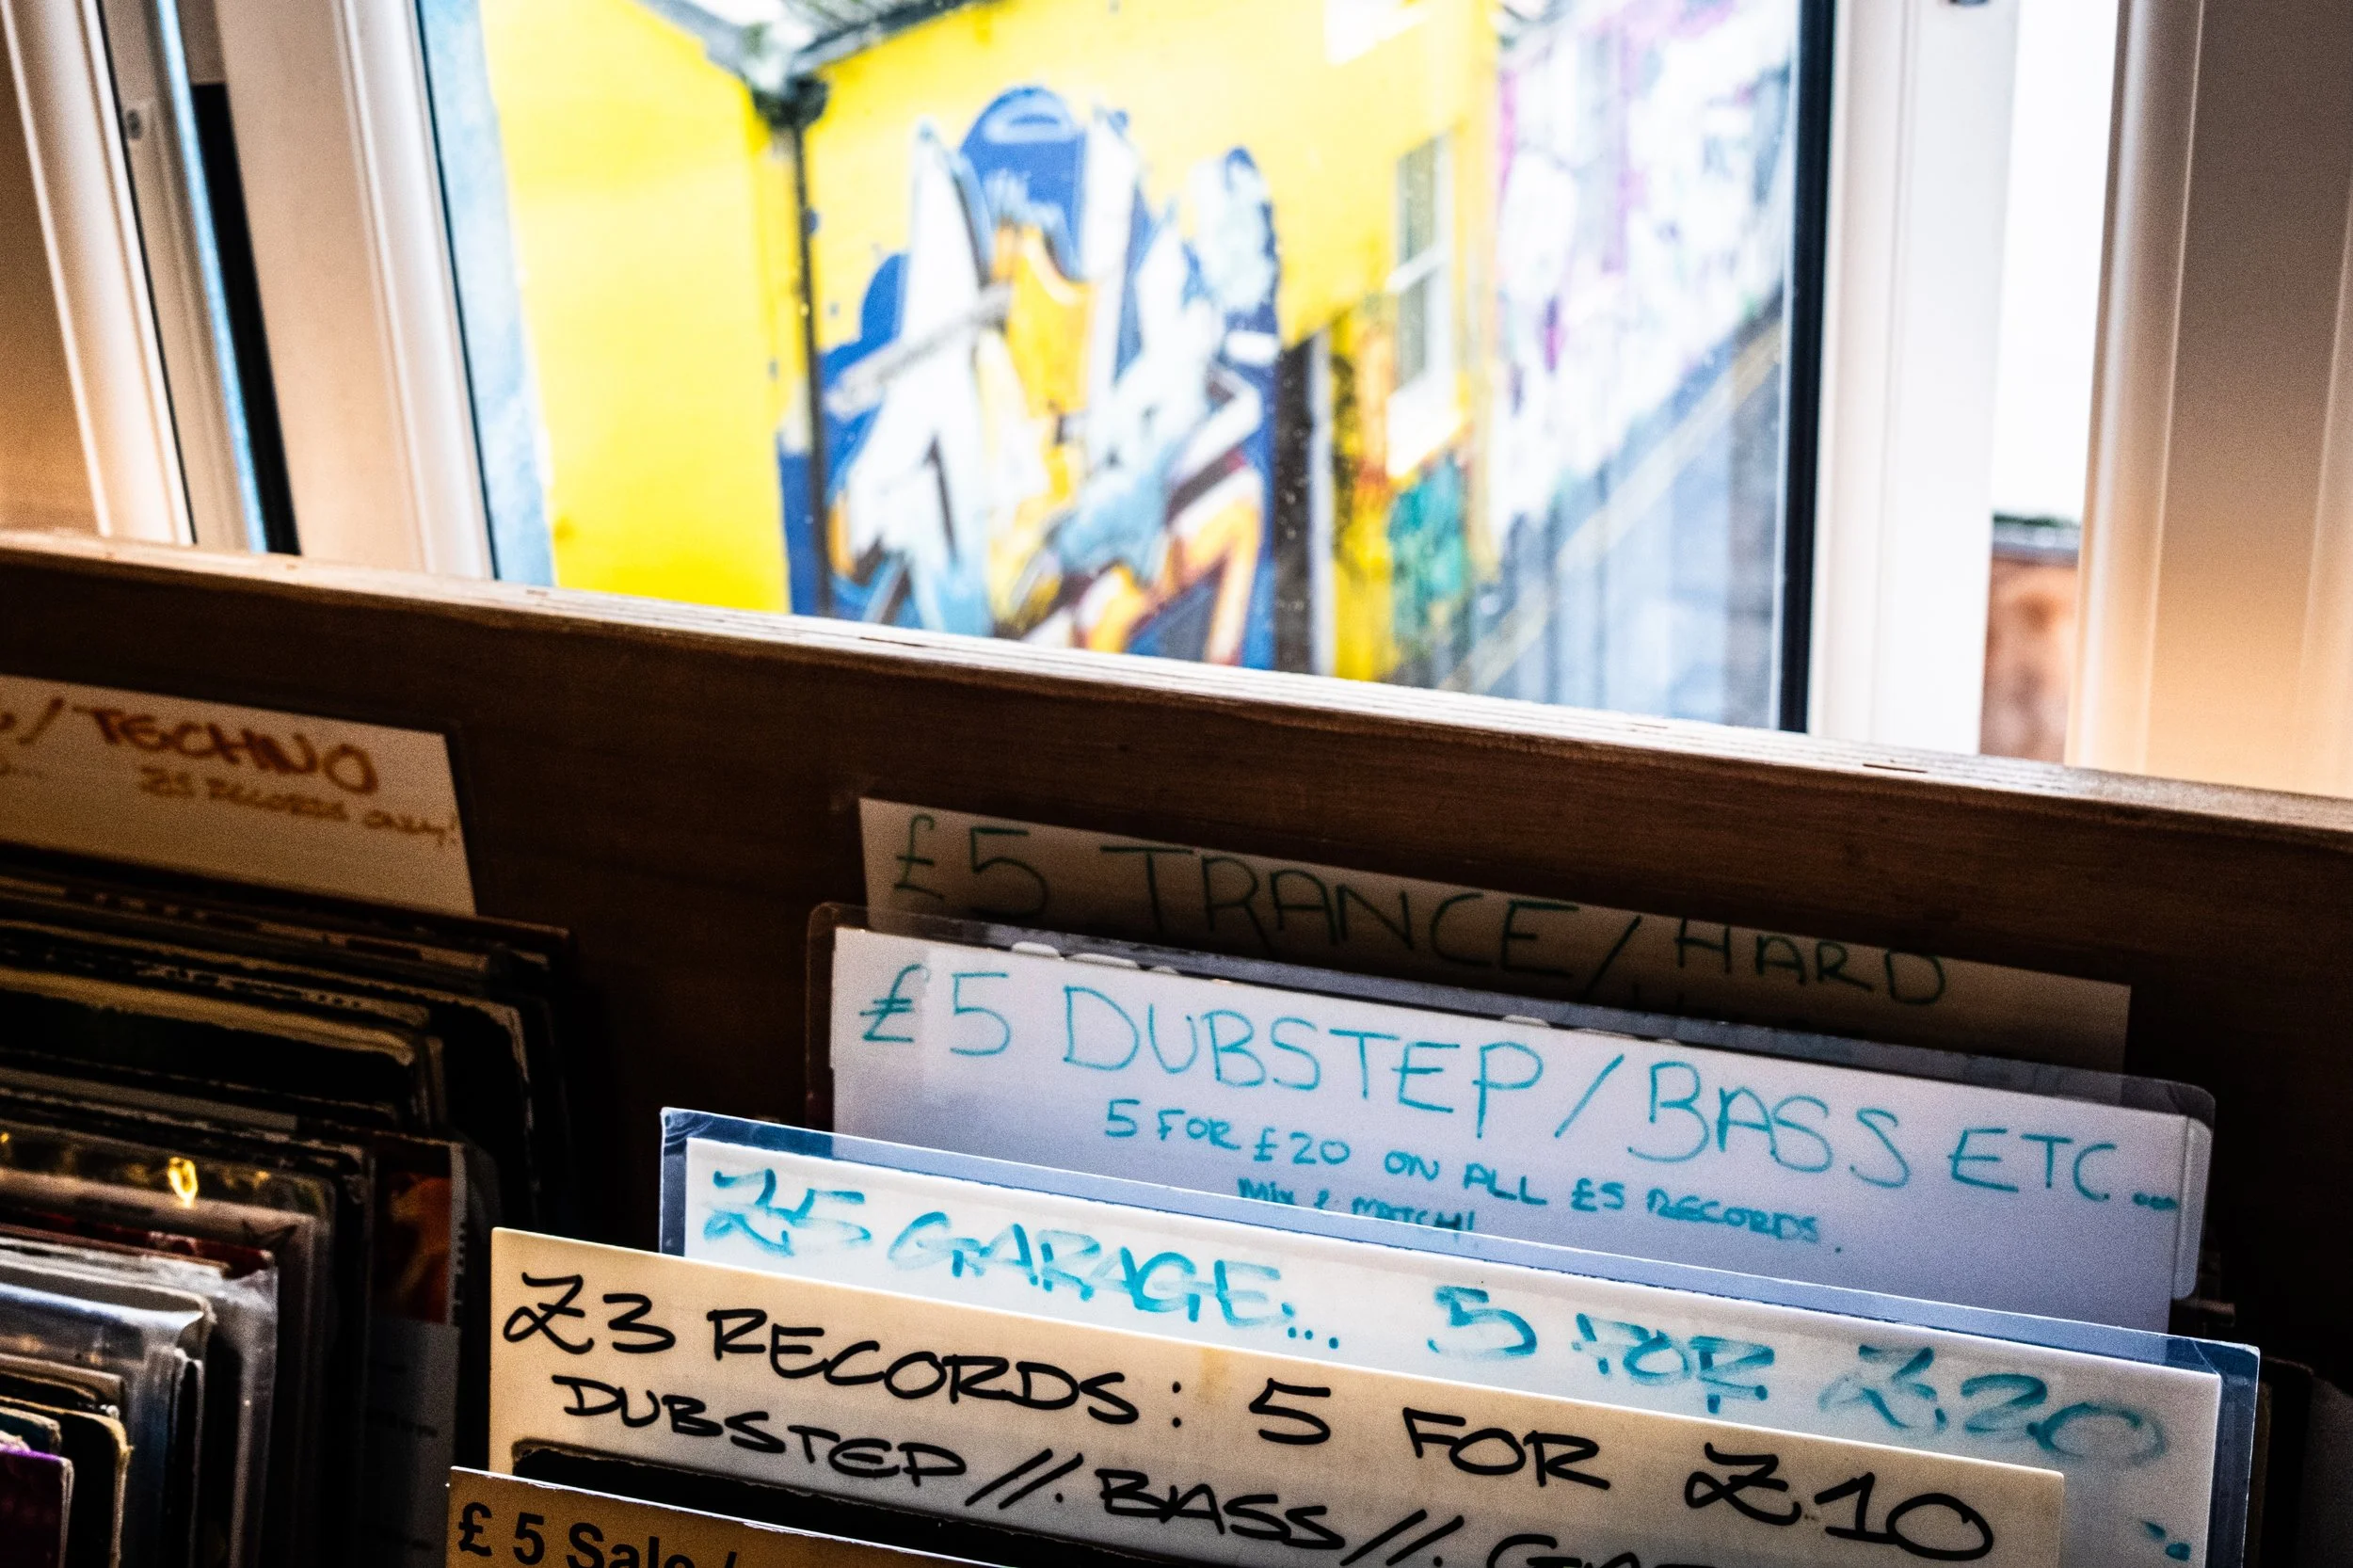 / TECHNO
£5 RECORDS ONLY!
£5 TRANCE / HARD
£5 DUBSTEP / BASS ETC...
5 FOR £20 ON ALL £5 RECORDS.
MIX & MATCH!
£5 GARAGE... 5 FOR £20
£3 RECORDS: 5 FOR £10
DUBSTEP //. BASS //.
£ 5 Sale /